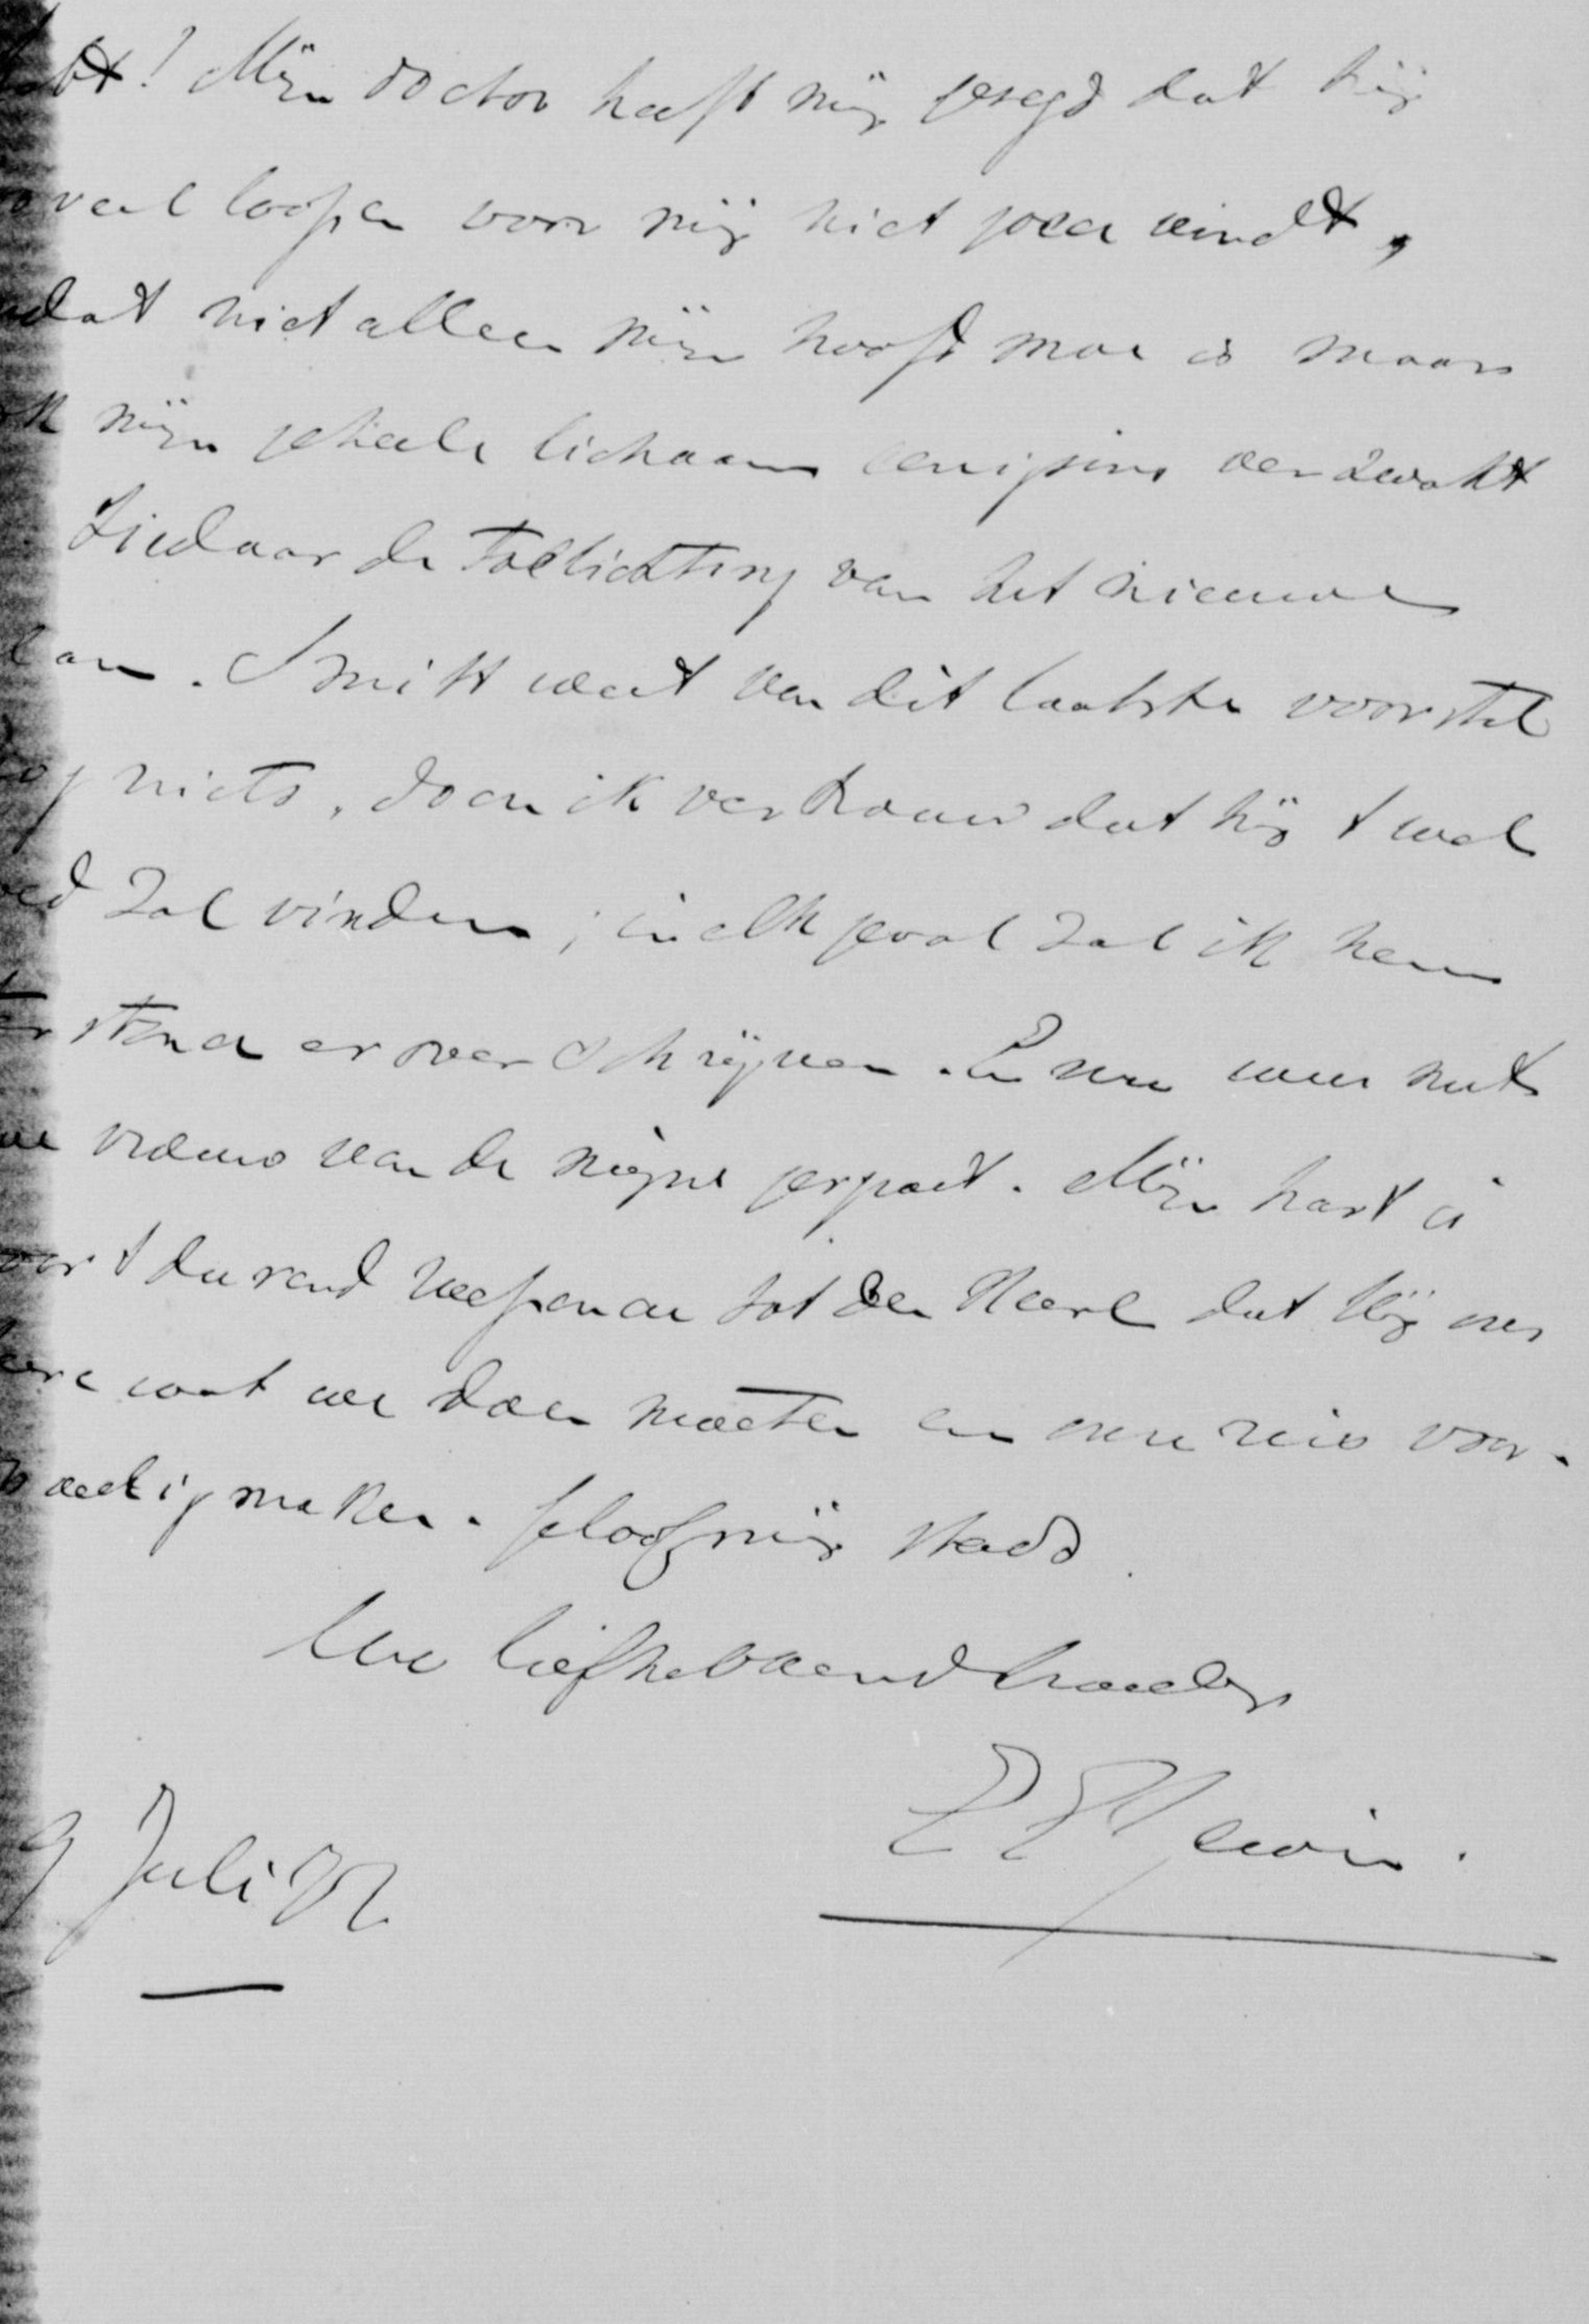 ebt! Mijn doctor heeft mij gezegd dat hij
veel loopen voor mij niet goed vindt,
dat niet alleen mijn hoofd moe is maar
k mijn geheele lichaam eenigzins verzwakt
Ziedaar de toelichting van het nieuwe
lan. Smitt weet van dit laatste voorstel
og niets, doch ik vertrouw dat hij t wel
ed zal vinden; in elk geval zal ik hem
er stond er over schrijven. En nu uwe
vrouw van de mijne gegroet. Mijn hart is
ort durend roepende tot den Heere dat Hij ons
eere wat we doen moeten en onze reis voor-
oedig maken. Geloof mij steeds
Uw liefhebbende broeder
9 Juli 92